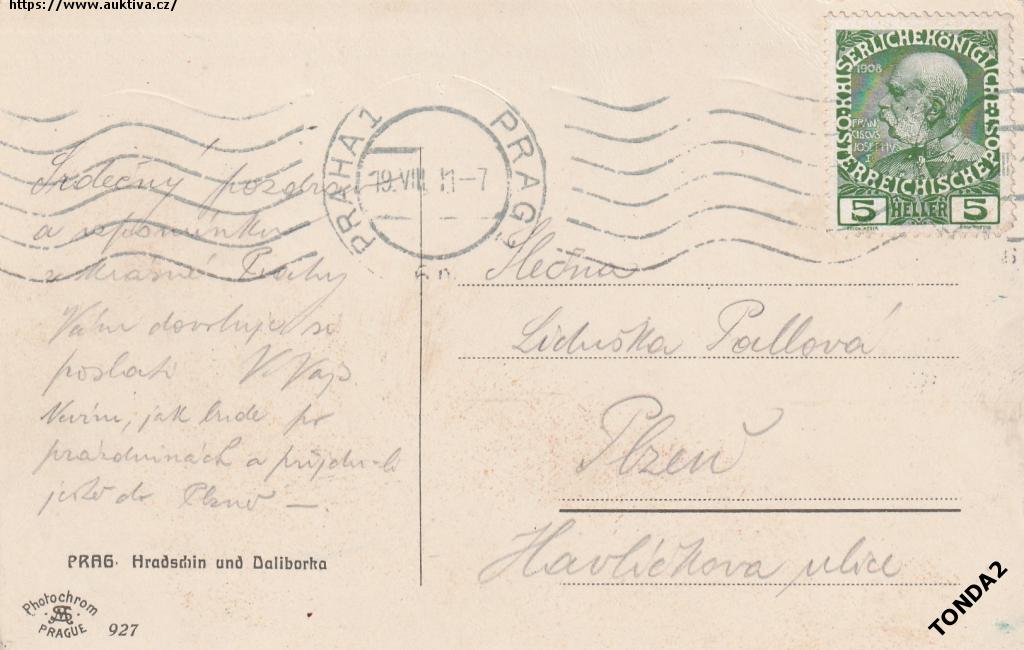 https://www.auktiva.cz/
KAISERLICHE KÖNIGLICHE ÖSTERREICHISCHE POST
1908
FRANCISCUS JOSEPHUS I
5 HELLER 5
PRAHA 1 PRAG
19.VIII 11-7
Srdečný pozdrav
a vzpomínku
z krásné Prahy
Vám dovoluje si
poslati
Nevím, jak bude po
prázdninách a přijdu-li
ještě do Plzně —
Slečna
Liduška Pallová
Plzeň
Havlíčkova ulice
PRAG. Hradschin und Daliborka
Photochrom
PRAGUE
927
TONDA2